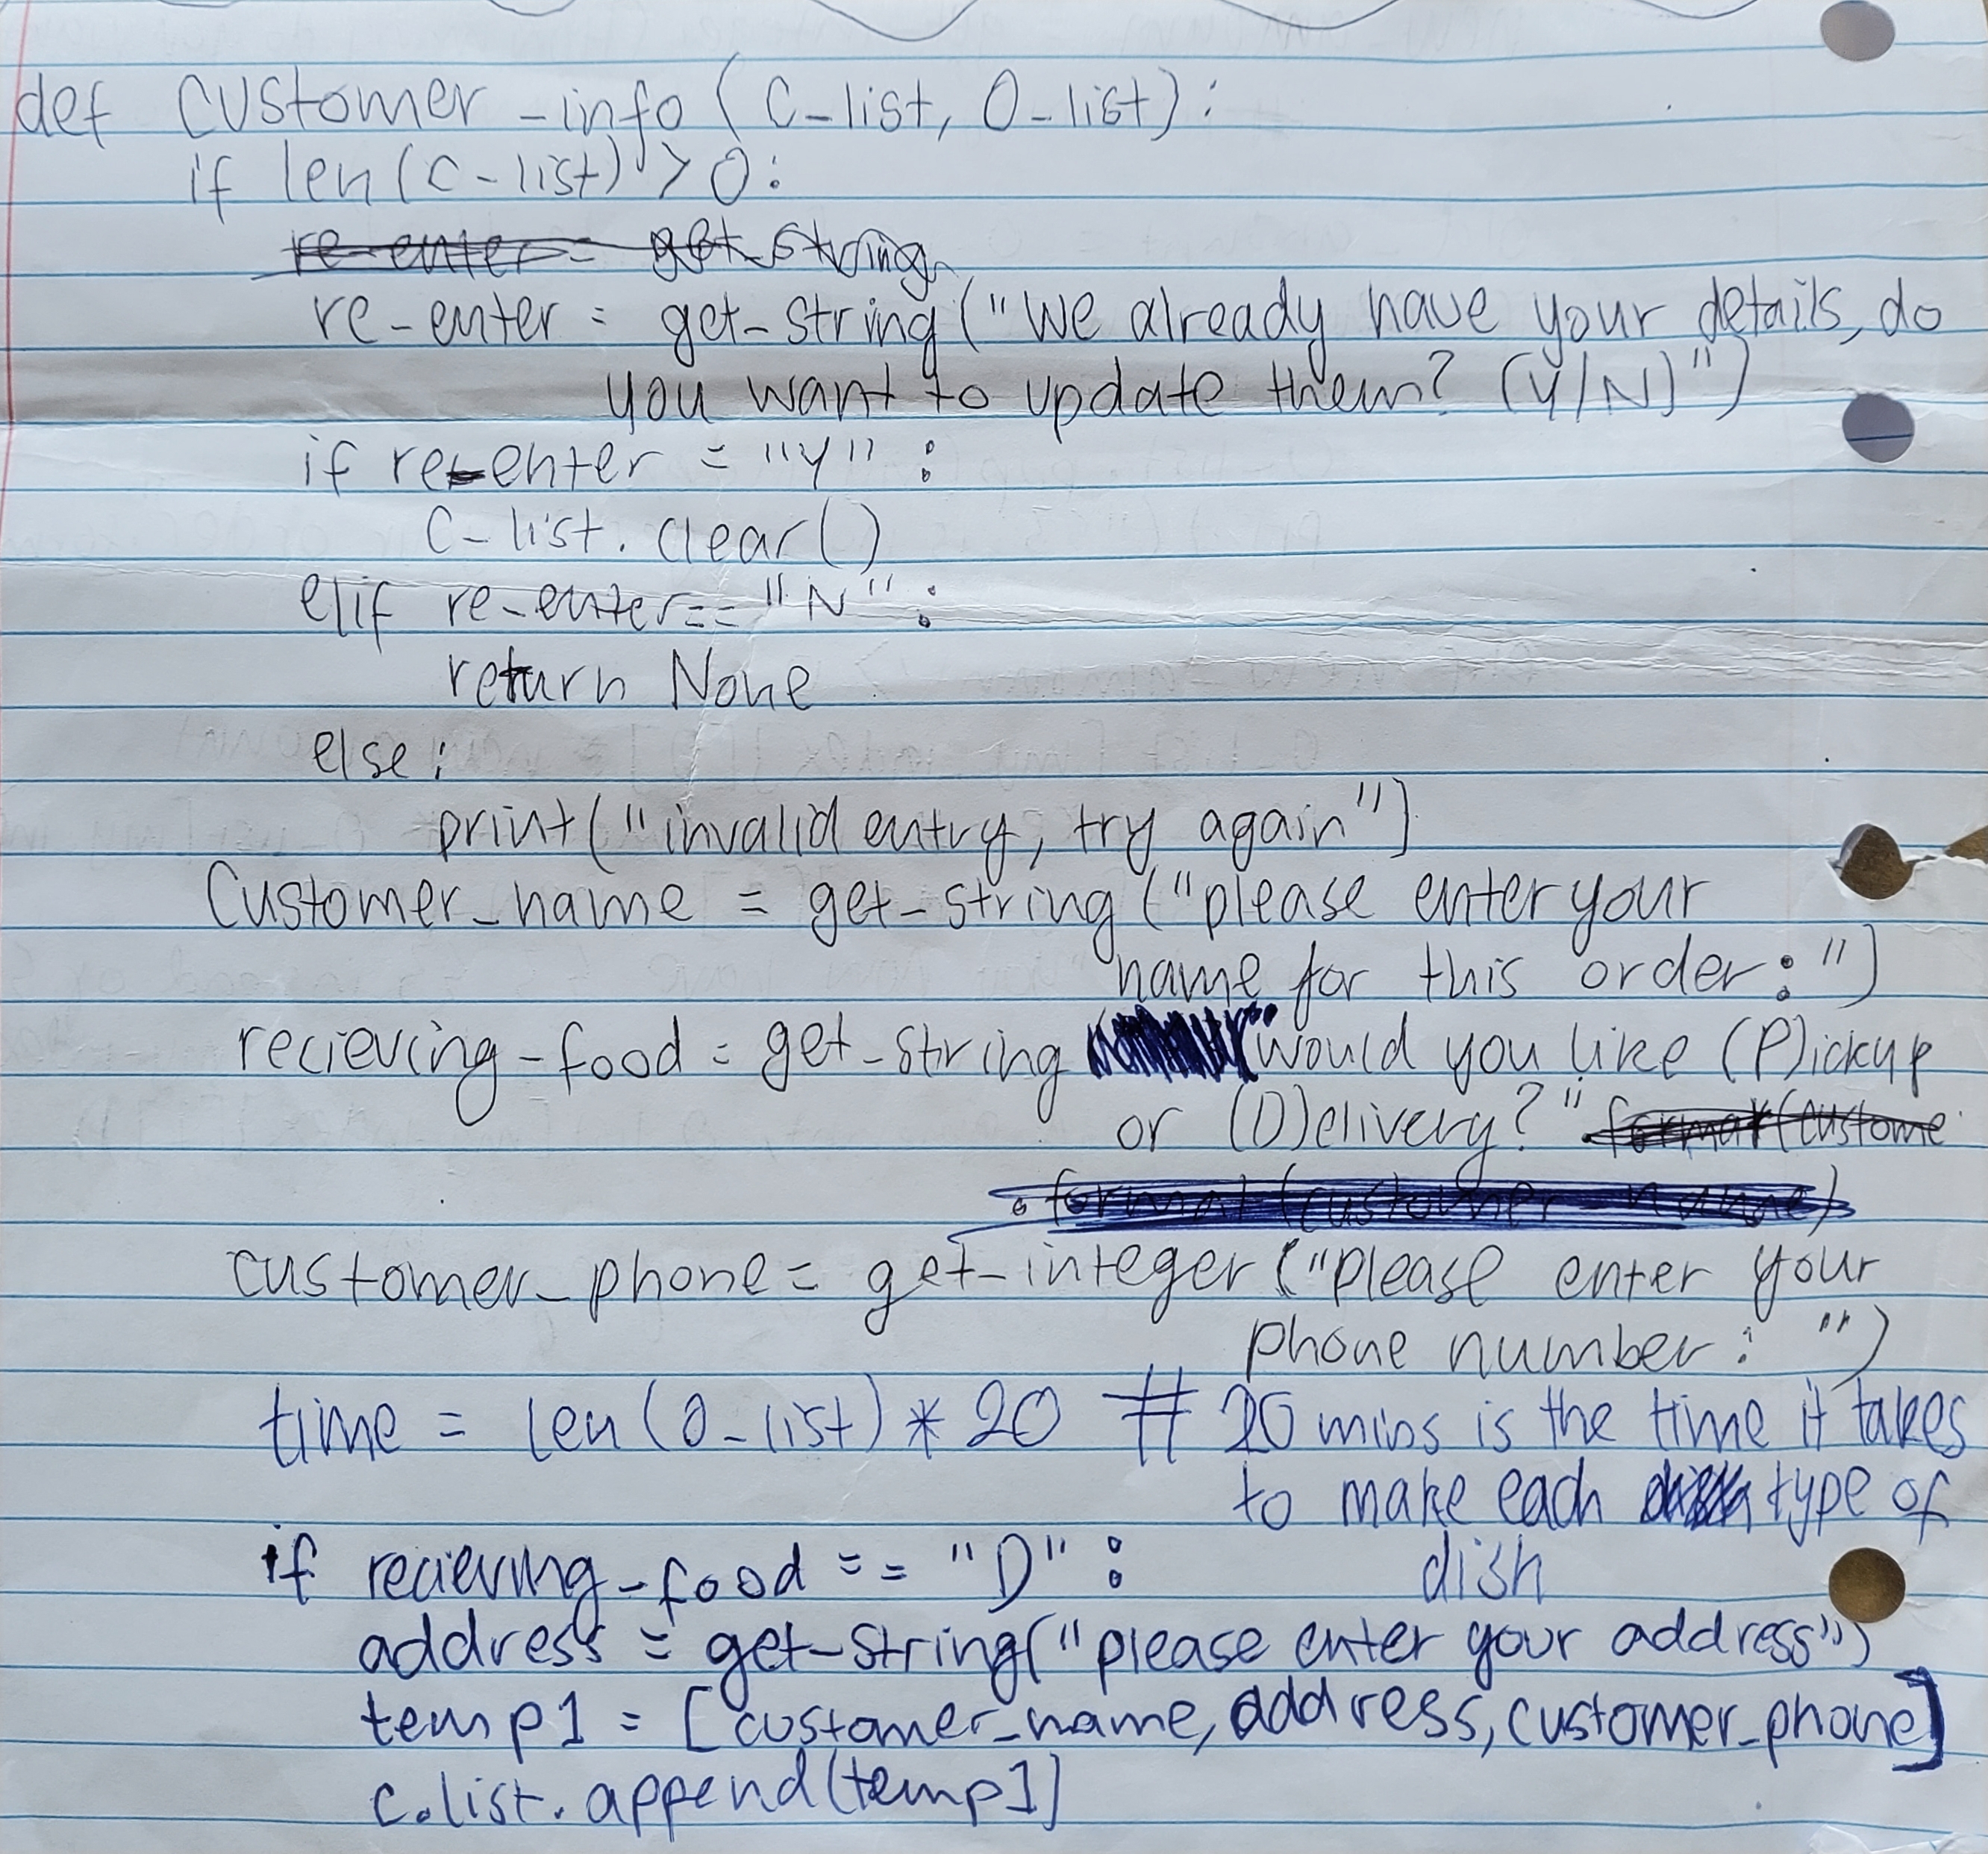 def customer_info (C_list, O_list):
if len(C_list) > 0:
re-enter = get_string
re-enter = get_string("We already have your details, do
you want to update them? (Y/N)")
if re-enter = "Y" :
C_list. clear()
elif re-enter== "N" :
return None
else:
print("invalid entry, try again")
Customer_name = get_string ("please enter your
name for this order: ")
recieving_food = get_string "would you like (P)ickup
or (D)elivery?" .format(custome
.format(customer_name)
customer_phone = get_integer ("please enter your
phone number: ")
time = len(O_list) * 20 # 20 mins is the time it takes
to make each type of
dish
if recieving_food == "D" :
address = get_string("please enter your address")
temp1 = [customer_name, address, customer_phone]
c.list.append(temp1)